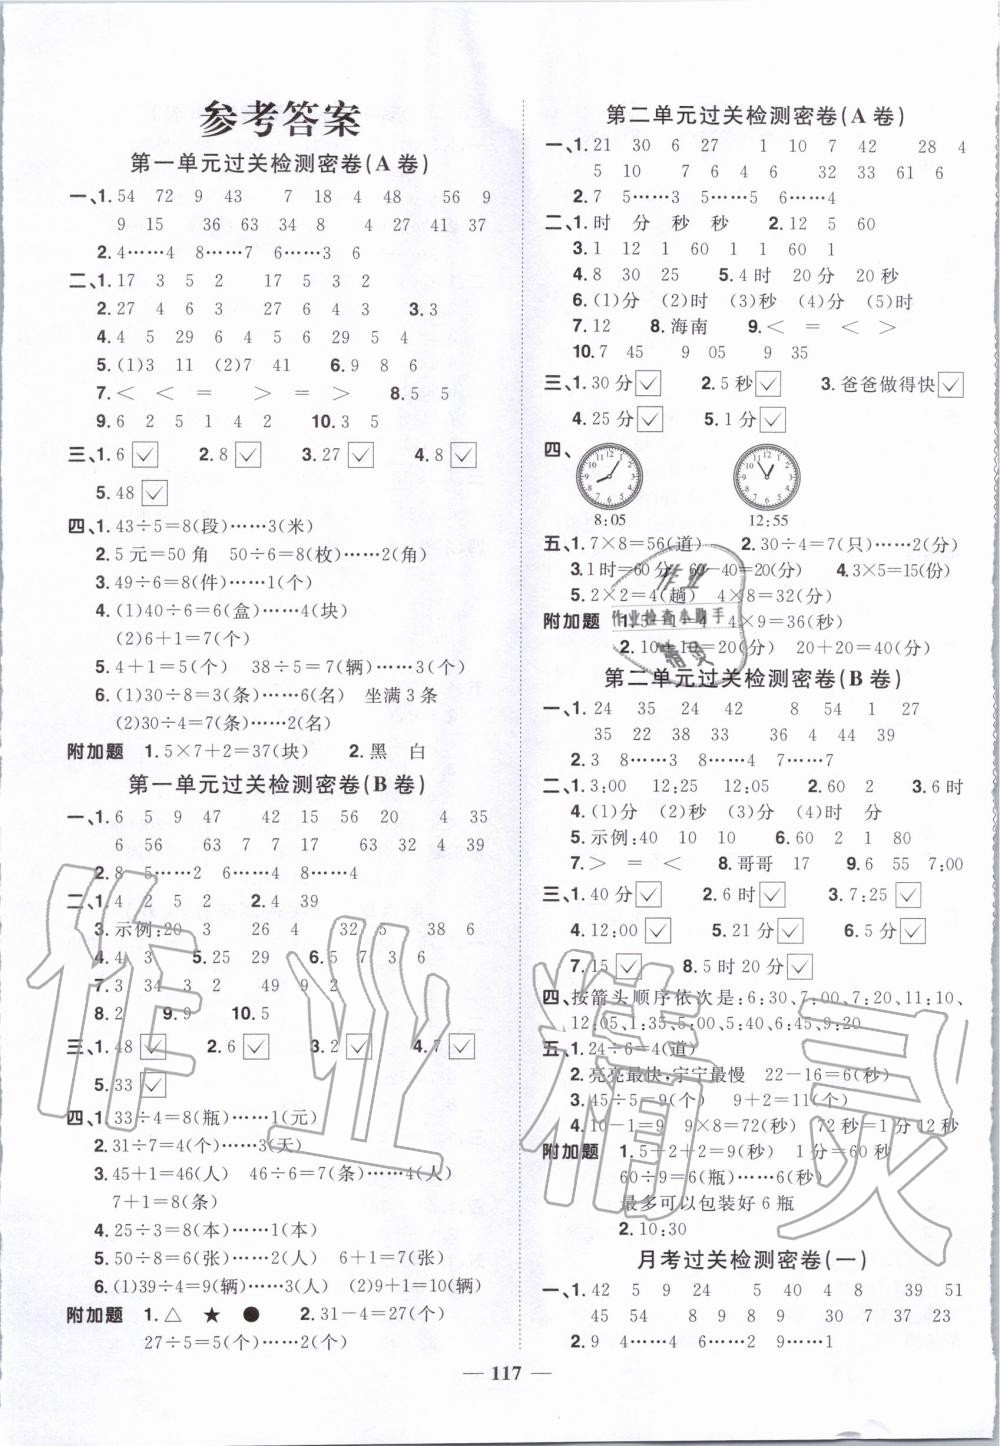 参考答案
第一单元过关检测密卷(A卷)
一、1.54 72 9 43 7 18 4 48 56 9
9 15 36 63 34 8 4 27 41 37
2.4……4 8……7 6……3 6
二、1.17 3 5 2 17 5 3 2
2.27 4 6 3 27 6 4 3 3.3
4.4 5 29 6 4 5 6 29 5 4
5.(1)3 11 (2)7 41 6.9 8 6
7.< < = > > > 8.5 5
9.6 2 5 1 4 2 10.3 5
三、1.6 ✓ 2.8 ✓ 3.27 ✓ 4.8 ✓
5.48 ✓
四、1.43÷5=8(段)……3(米)
2.5元=50角 50÷6=8(枚)……2(角)
3.49÷6=8(件)……1(个)
4.(1)40÷6=6(盒)……4(块)
(2)6+1=7(个)
5.4+1=5(个) 38÷5=7(辆)……3(个)
6.(1)30÷5=5(条)……5(名) 坐满3条
(2)30÷4=7(条)……2(名)
附加题 1.5×7+2=37(块) 2.黑 白
第一单元过关检测密卷(B卷)
一、1.6 5 9 47 42 15 56 20 4 35
6 56 63 7 7 17 63 32 4 39
2.8 5……2 6……4 8……4
二、1.4 2 5 2 2.4 39
3.示例:20 3 26 4 32 5 38 6
4.4 3 5.25 29 6.5 7 3 6
7.3 34 3 2 49 9 2
8.2 9.9 10.5
三、1.48 ✓ 2.6 ✓ 3.2 ✓ 4.7 ✓
5.33 ✓
四、1.33÷4=8(瓶)……1(元)
2.31÷7=4(个)……3(天)
3.45+1=46(人) 46÷6=7(条)……4(人)
7+1=8(条)
4.25÷3=8(本)……1(本)
5.50÷8=6(张)……2(人) 6+1=7(张)
6.(1)39÷4=9(辆)……3(人) (2)9+1=10(辆)
附加题 1.△ ★ ● 2.31-4=27(个)
27÷5=5(个)……2(个)
第二单元过关检测密卷(A卷)
一、1.21 30 6 27 1 10 7 42 28 4
5 10 7 6 4 6 32 33 61 6
2.7 5……3 5……5 6……4
二、1.时 分 秒 秒 2.12 5 60
3.1 12 1 60 1 1 60 1
4.8 30 25 5.4时 20分 20秒
6.(1)分 (2)时 (3)秒 (4)分 (5)时
7.12 8.海南 9.< = < >
10.7 45 9 05 9 35
三、1.30分 ✓ 2.5秒 ✓ 3.爸爸做得快 ✓
4.25分 ✓ 5.1分 ✓
四、
8:05 12:55
五、1.7×8=56(道) 2.30÷4=7(只)……2(分)
3.1时=60分 60-40=20(分) 4.3×5=15(份)
5.2×2=4(趟) 4×8=32(分)
附加题 1.5-1=4 4×9=36(秒)
2.10+10=20(分) 20+20=40(分)
第二单元过关检测密卷(B卷)
一、1.24 35 24 42 8 54 1 27
35 22 38 33 36 4 44 35
2.3 8……8 4……4 7……7
二、1.3:00 12:25 12:05 2.60 2 3.6时
4.(1)分 (2)秒 (3)分 (4)时 分
5.示例:40 10 10 6.60 2 1 80
7.> = < 8.哥哥 17 9.6 55 7:00
三、1.40分 ✓ 2.6时 ✓ 3.7:25 ✓
4.12:00 ✓ 5.21分 ✓ 6.5分 ✓
7.15 ✓ 8.5时20分 ✓
四、按箭头顺序依次是:6:30、7:00、7:20、11:10、
12:05、1:35、5:00、5:40、6:45、9:20
五、1.24÷6=4(道)
2.亮亮最快,宁宁最慢 22-16=6(秒)
3.45÷5=9(个) 9+2=11(个)
4.10-1=9 9×8=72(秒) 72秒=1分12秒
附加题 1.5+2+2=9(秒) 1分=60秒
60÷9=6(瓶)……6(秒)
最多可以包装好6瓶
2.10:30
月考过关检测密卷(一)
一、1.42 5 9 24 5 40 4 8 39 51
45 54 8 9 8 9 30 7 37 23
2.9 4……4 6……2 9……1
— 117 —
作业
作业检查小助手
精灵
作业精灵